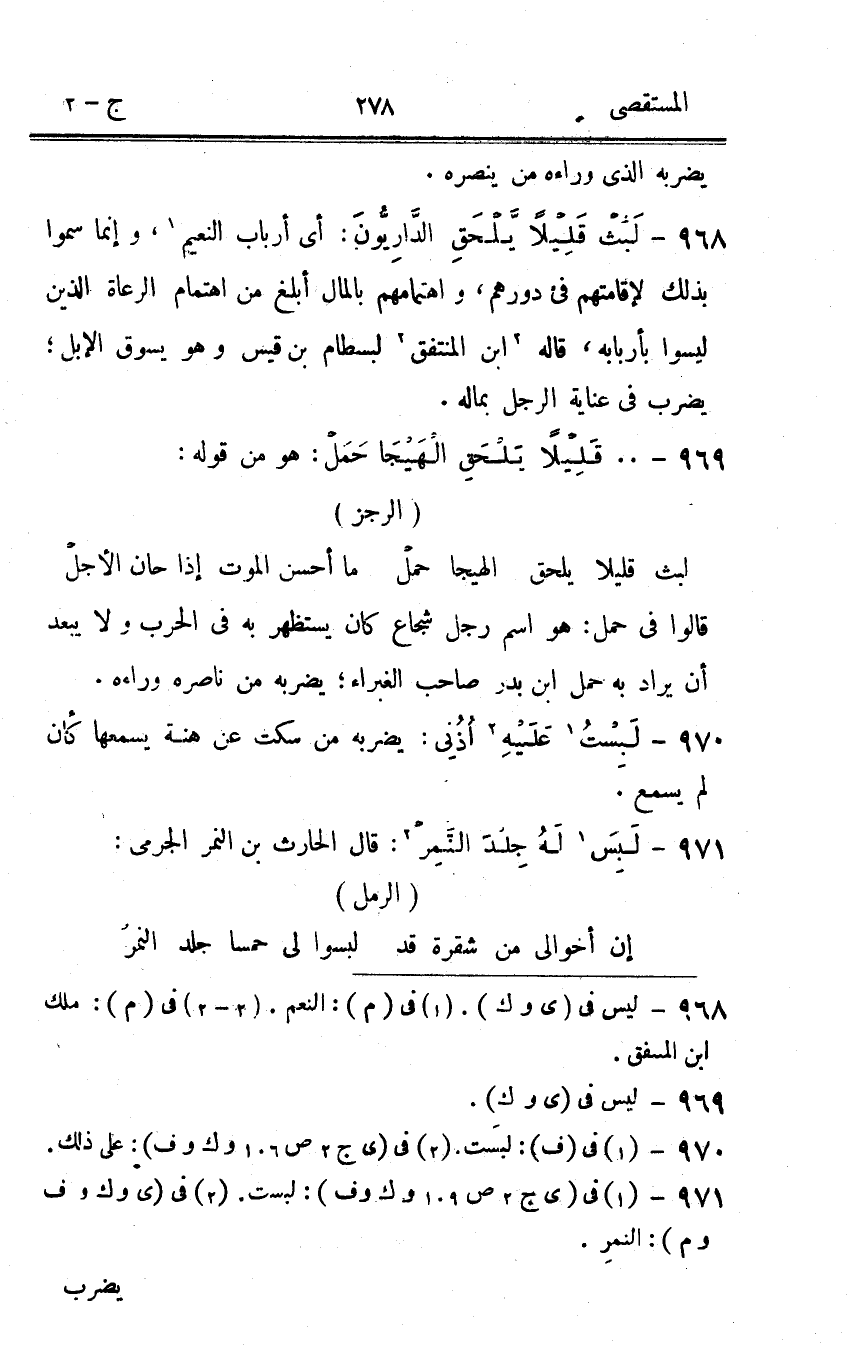 المستقصى ٢٧٨ ج – ٢
يضربه الذى وراءه من ينصره .
٩٦٨ – لَبِّثْ قَلِيْلًا يَّلْحَقِ الدَّارِيُّونَ: أى أرباب النعيم ١ ، و إنما سموا
بذلك لإقامتهم فى دورهم، و اهتمامهم بالمال أبلغ من اهتمام الرعاة الذين
ليسوا بأربابه، قاله ٢ ابن المنتفق ٢ لبسطام بن قيس و هو يسوق الإبل؛
يضرب فى عناية الرجل بماله .
٩٦٩ – .. قَلِيْلًا يَلْحَقِ الْهَيْجَا حَمَلْ: هو من قوله :
( الرجز )
لبث قليلا يلحق الهيجا حملْ ما أحسن الموت إذا حان الأجلْ
قالوا فى حمل: هو اسم رجل شجاع كان يستظهر به فى الحرب و لا يبعد
أن يراد به حمل ابن بدر صاحب الغبراء؛ يضربه من ناصره وراءه .
٩٧٠ – لَبِسْتُ ١ عَلَيْهِ ٢ أُذُنِى: يضربه من سكت عن هنة يسمعها كأن
لم يسمع .
٩٧١ – لَبِسَ ١ لَهُ جِلْدَ النَّمِرْ ٢: قال الحارث بن النمر الجرمى :
( الرمل )
إن أخوالى من شقرة قد لبسوا لى حمسا جلد النمرْ
٩٦٨ – ليس فى (ى و ك) . (١) فى (م) : النعم . (٢ – ٢) فى (م) : ملك
ابن المسفق .
٩٦٩ – ليس فى (ى و ك) .
٩٧٠ – (١) فى (ف) : لبسَت. (٢) فى (ى ج ٢ ص ١٠٦ و ك و ف): على ذلك.
٩٧١ – (١) فى (ى ج ٢ ص ١٠٩ و ك وف) : لبست. (٢) فى (ى وك و ف
و م) : النمرِ .
يضرب